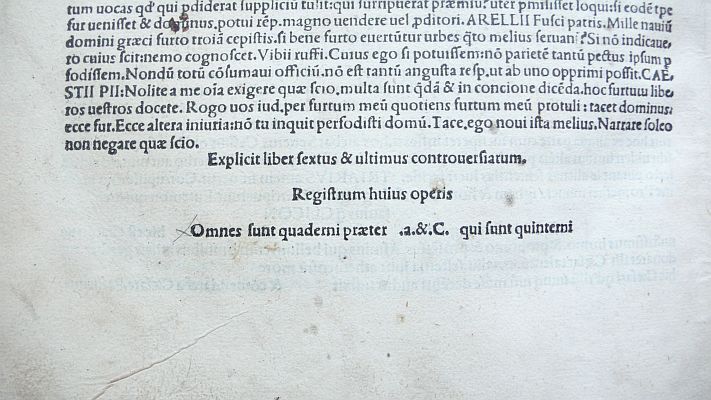 tum uocas qđ qui pdiderat suppliciũ tulit: qui surripuerat præmiũ? uter pmisisset loqui: si eodẽ tpe
fur uenisset & dominus, potui rẽp. magno uendere uel ,pditori. ARELLII Fusci patris. Mille nauiũ
domini græci furto troiã cepistis. si bene furto euertũtur urbes q̃to melius seruani? Si nõ indicaue,
ro cuius scit: nemo cognoscet. Vibii ruffi. Cuius ego si potuissem: nõ parietẽ tantũ pectus ipsum p
fodissem. Nondũ totũ cõsumaui officiũ. nõ est tantũ angusta resp. ut ab uno opprimi possit. CAE,
STII PII: Nolite a me oĩa exigere quæ scio, multa sunt q̃dã & in concione dicẽda. hoc furtuu libe,
ros uestros docete. Rogo uos iud. per furtum meũ quotiens furtum meũ protuli: tacet dominus:
ecce fur. Ecce altera iniuria: nõ tu inquit perfodisti domũ. Tace, ego noui ista melius. Narrare soleo
non negare quæ scio.
Explicit liber sextus & ultimus controuersiarum.
Registrum huius operis
Omnes sunt quaderni præter .a.&.C. qui sunt quinterni